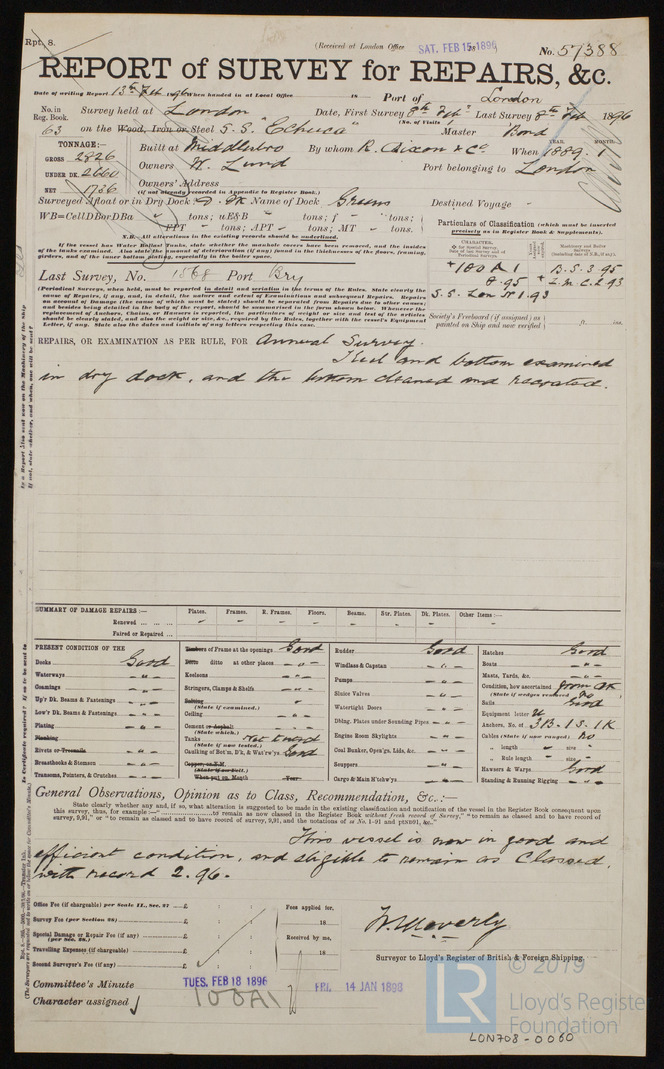 Rpt. 8.
(Received at London Office
SAT. FEB 15 1896
No. 57388
REPORT of SURVEY for REPAIRS, &c.
Date of writing Report 13th Feb 1896 When handed in at Local Office 18 Port of London
No. in Reg. Book. 63
Survey held at London Date, First Survey 8th Feb Last Survey 8th Feb 1896
(No. of Visits 1)
on the Wood, Iron or Steel S.S. "Echuca" Master Bond
TONNAGE:— GROSS 2826 UNDER DK. 2660 NET 1736
Built at Middlesbro By whom R. Dixon & Co When 1889. 1
YEAR. MONTH.
Owners W. Lund Port belonging to London
Owners' Address
(if not already recorded in Appendix to Register Book.)
Surveyed Afloat or in Dry Dock D. Dk Name of Dock Greens Destined Voyage -
WB=CellDBorDBa tons; uE&B tons; f tons;
FPT tons; APT tons; MT tons.
N.B.—All alterations in the existing records should be underlined.
If the vessel has Water Ballast Tanks, state whether the manhole covers have been removed, and the insides
of the tanks examined. Also the amount of deterioration (if any) found in the thicknesses of the floors, framing,
girders, and of the inner bottom plating, especially in the boiler space.
Particulars of Classification (which must be inserted
precisely as in Register Book & Supplements).
CHARACTER.
Machinery and Boiler Surveys
+100 A 1 B.S. 3.95
8.95 + L.M.C. 2.93
S.S. Lon No 1.93
Society's Freeboard (if assigned) as
painted on Ship and now verified ft. ins.
Last Survey, No. 1568 Port Bry
(Periodical Surveys, when held, must be reported in detail and seriatim in the terms of the Rules. State clearly the
cause of Repairs, if any, and, in detail, the nature and extent of Examinations and subsequent Repairs. Repairs
on account of Damage (the cause of which must be stated) should be separated from Repairs due to other causes;
and besides being detailed in the body of the report, should be summarised in the form shewn below. Whenever the
replacement of Anchors, Chains, or Hawsers is reported, the particulars of weight or size and test of the articles
should be clearly stated, and also the weight or size, &c., required by the Rules, together with the vessel's Equipment
Letter, if any. State also the dates and initials of any letters respecting this case.
REPAIRS, OR EXAMINATION AS PER RULE, FOR Annual Survey.
Keel and bottom examined
in dry dock, and the bottom cleaned and recoated.
SUMMARY OF DAMAGE REPAIRS:— Plates. Frames. R. Frames. Floors. Beams. Str. Plates. Dk. Plates. Other Items:—
Renewed ... ... ...
Faired or Repaired ...
PRESENT CONDITION OF THE
Decks Good
Waterways -"-
Coamings -"-
Up'r Dk. Beams & Fastenings -"-
Low'r Dk. Beams & Fastenings -"-
Plating -"-
Planking
Rivets or Treenails -"-
Breasthooks & Stemson -"-
Transoms, Pointers, & Crutches -"-
Timbers of Frame at the openings Good
Do. ditto at other places -"-
Keelsons -"-
Stringers, Clamps & Shelfs -"-
Salting
(State if examined.)
Ceiling -"-
Cement or Asphalt -"-
(State which.)
Tanks Not tested
(State if now tested.)
Caulking of Bot'm, D'k, & Wat'rw'ys Good
Copper, or Y.M.
(State if on Felt.)
When put on, Month Year
Rudder Good
Windlass & Capstan -"-
Pumps -"-
Sluice Valves -"-
Watertight Doors -"-
Dblng. Plates under Sounding Pipes -"-
Engine Room Skylights -"-
Coal Bunker, Open'gs, Lids, &c. -"-
Scuppers -"-
Cargo & Main H'tchw'ys -"-
Hatches Good
Boats -"-
Masts, Yards, &c. -"-
Condition, how ascertained from Dk
(State if wedges removed) No
Sails Good
Equipment letter U
Anchors, No. of 3B. 1S. 1K
Cables (State if now ranged) No
„ length size
„ Rule length size
Hawsers & Warps Good
Standing & Running Rigging -"-
General Observations, Opinion as to Class, Recommendation, &c.:—
State clearly whether any, and if so, what alteration is suggested to be made in the existing classification and notification of the vessel in the Register Book consequent upon
this survey, thus, for example:—"..........to remain as now classed in the Register Book without fresh record of Survey," "to remain as classed and to have record of
survey, 9,91," or "to remain as classed and to have record of survey, 9,91, and the notations of ss No. 1-91 and ptND91, &c."
This vessel is now in good and
efficient condition, and eligible to remain as Classed,
with record 2.96.
Office Fee (if chargeable) per Scale II., Sec. 27 £
Survey Fee (per Section 28) £
Special Damage or Repair Fee (if any) £
(per Sec. 28.)
Travelling Expenses (if chargeable) £
Second Surveyor's Fee (if any) £
Fees applied for, 18
Received by me, 18
Surveyor to Lloyd's Register of British & Foreign Shipping.
Committee's Minute TUES. FEB 18 1896
FRI. 14 JAN 1898
Character assigned 100A1
© 2019
LR
Lloyd's Register
Foundation
LON708-0060